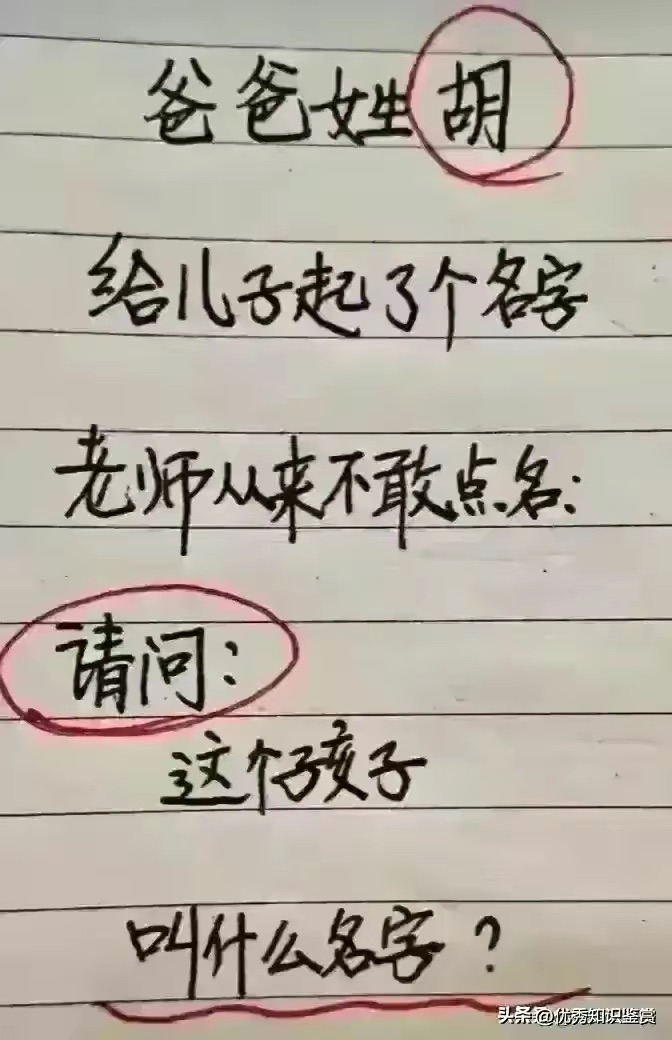 爸爸姓胡
给儿子起了个名字
老师从来不敢点名:
请问:
这个孩子
叫什么名字?
头条@优秀知识鉴赏